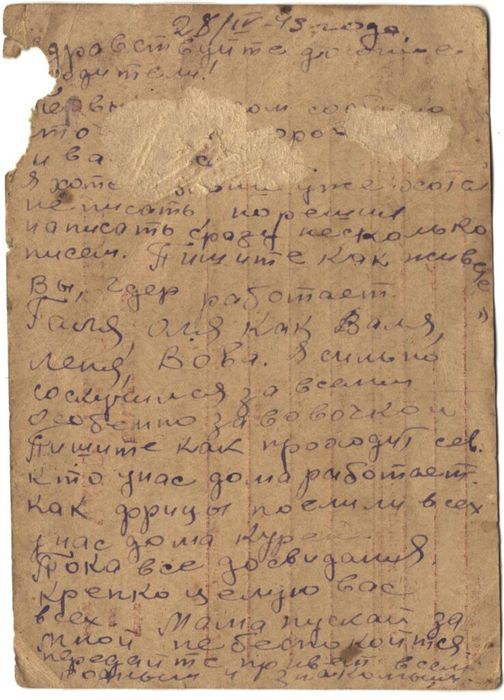 28/IV-43 года.
здравствуйте дорогие
родители!
первы ом сообщаю
что
и ва
я хоте уже
не писать, но решил
написать сразу несколько
писем. Пишите как живёте
вы, где работает
Галя, Оля как Валя,
Лёня, Вова. Я сильно
соскучился за всеми
особенно за вовочкой
Пишите как проходит сев.
кто у нас дома работает.
как фрицы поели всех
у нас дома курей
Пока все досвидания
крепко целую вас
всех. Мама пускай за
мной не беспокоится.
передайте привет всем
родным и знакомым.